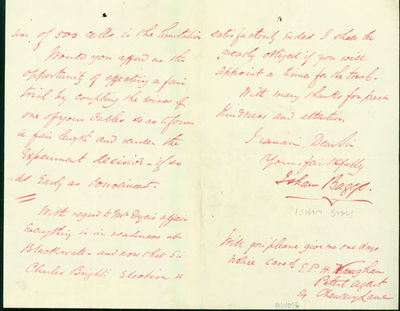 use of 500 cells is the limitation
Would you afford me the
opportunity of effecting a fair
trial by coupling the ends of
one of your Cables so as to form
a fair length and render the
Experiment decisive - if so
as Early as Convenient -
With regard to Mr Dyer's affair
Everything is in readiness at
Blackwall - and now that Sir
Charles Bright's Election is
satisfactorily ended I shall be
greatly obliged if you will
appoint a time for the trial.
With many thanks for past
Kindness and attention,
I remain, Dear Sir
Yours faithfully
Isham Baggs.
ISHAM BAGGS
Will you please give me one days
notice care of E P. H. Vaughan
Patent Agent
54 Chancery Lane